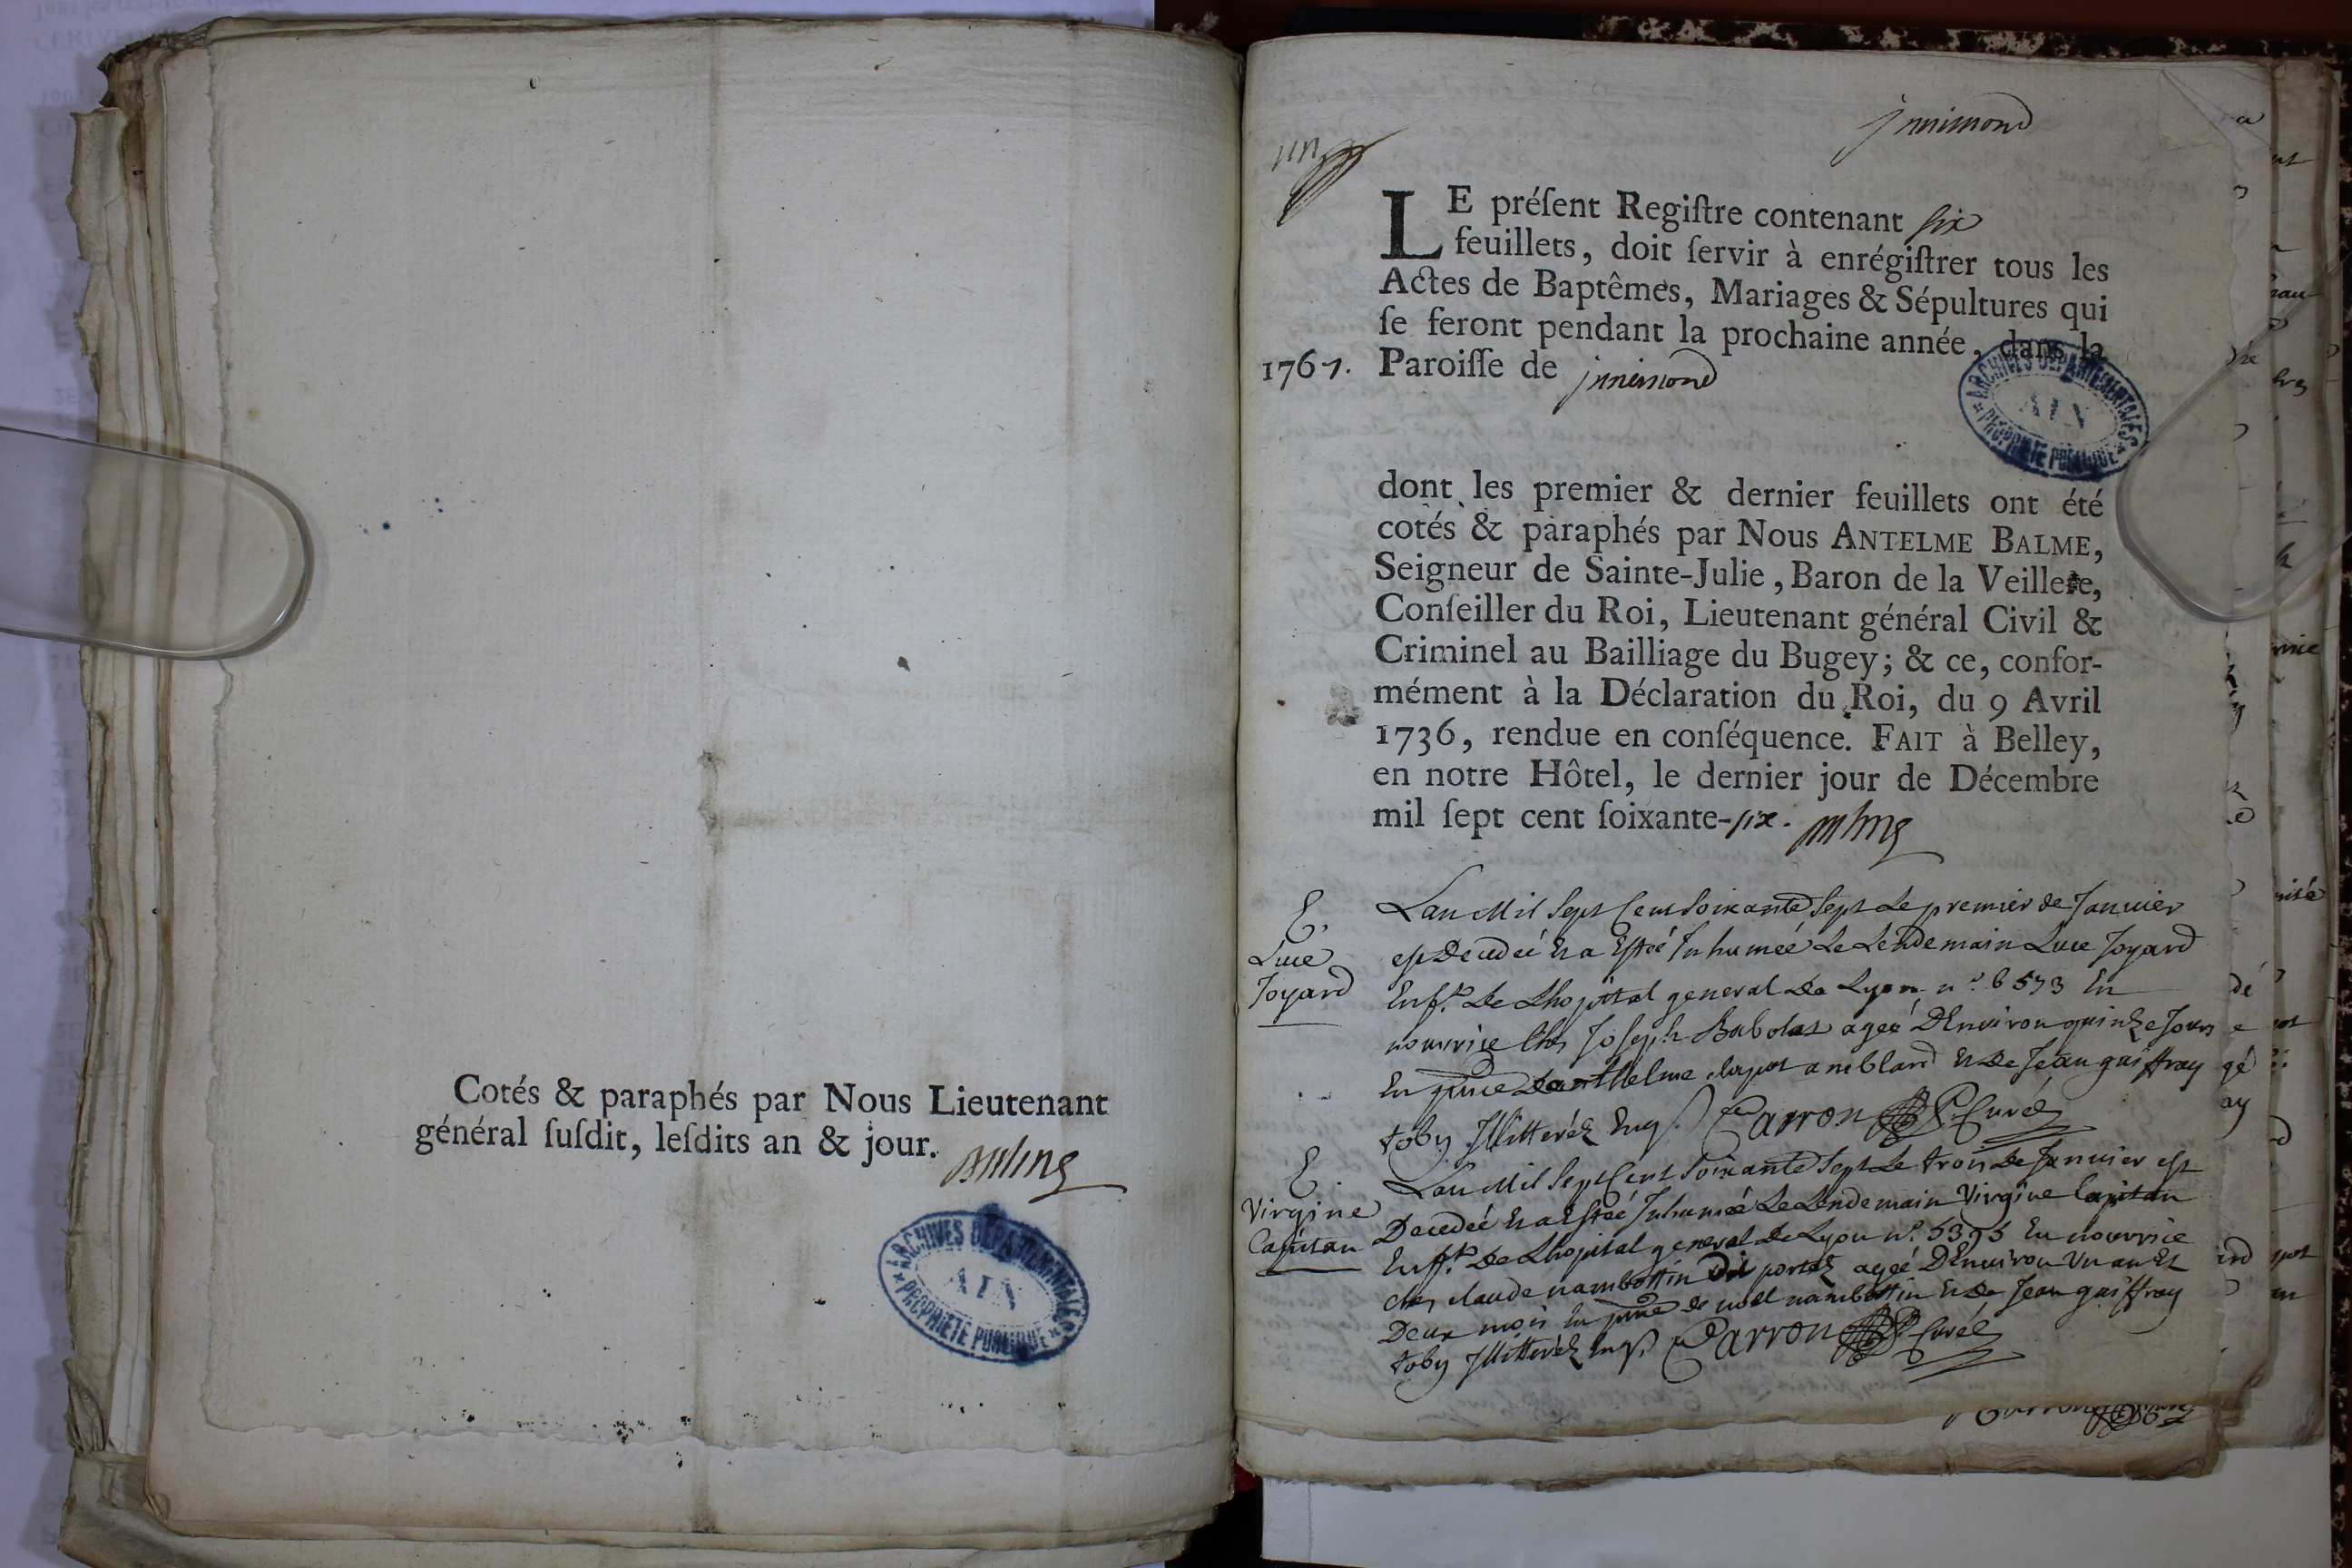 Cotés & paraphés par Nous Lieutenant
général ſuſdit, leſdits an & jour.
ARCHIVES DEPARTEMENTALES
AIN
PROPRIETE PUBLIQUE
jnnimond
un
LE préſent Regiſtre contenant six
feuillets, doit ſervir à enrégiſtrer tous les
Actes de Baptêmes, Mariages & Sépultures qui
ſe feront pendant la prochaine année, dans la
1767. Paroiſſe de jnnimond
ARCHIVES DEPARTEMENTALES
AIN
PROPRIETE PUBLIQUE
dont les premier & dernier feuillets ont été
cotés & paraphés par Nous ANTELME BALME,
Seigneur de Sainte-Julie, Baron de la Veillere,
Conſeiller du Roi, Lieutenant général Civil &
Criminel au Bailliage du Bugey; & ce, confor-
mément à la Déclaration du Roi, du 9 Avril
1736, rendue en conſéquence. FAIT à Belley,
en notre Hôtel, le dernier jour de Décembre
mil ſept cent ſoixante-six.
E.
Luce
Joyard
Lan Mil Sept Cent Soixante Sept Le premier de Janvier
est Decedeé Et a Esteé Inhumeé Le Lendemain Luce Joyard
Enft. De Lhopital general De Lyon n.º 6573 En
nourrice Ches Joseph Babolat ageé DEnviron quinze Jours
En pnce Danthelme clapot amblard Et De Jean guiffray
toby Illitteréz Enq. Carron Curé
E.
Virgine
Capitan
Lan Mil Sept Cent Soixante Sept Le trois De Janvier est
Decedeé Et a Esteé Inhumeé Le Lendemain Virgine Capitan
Enft. De Lhopital general De Lyon n.º 5395 En nourrice
ches claude nambottin Dit portez ageé DEnviron Un an Et
Deux mois En pnce de noel nambottin Et De Jean guiffray
toby Illitteréz Enq. Carron Curé